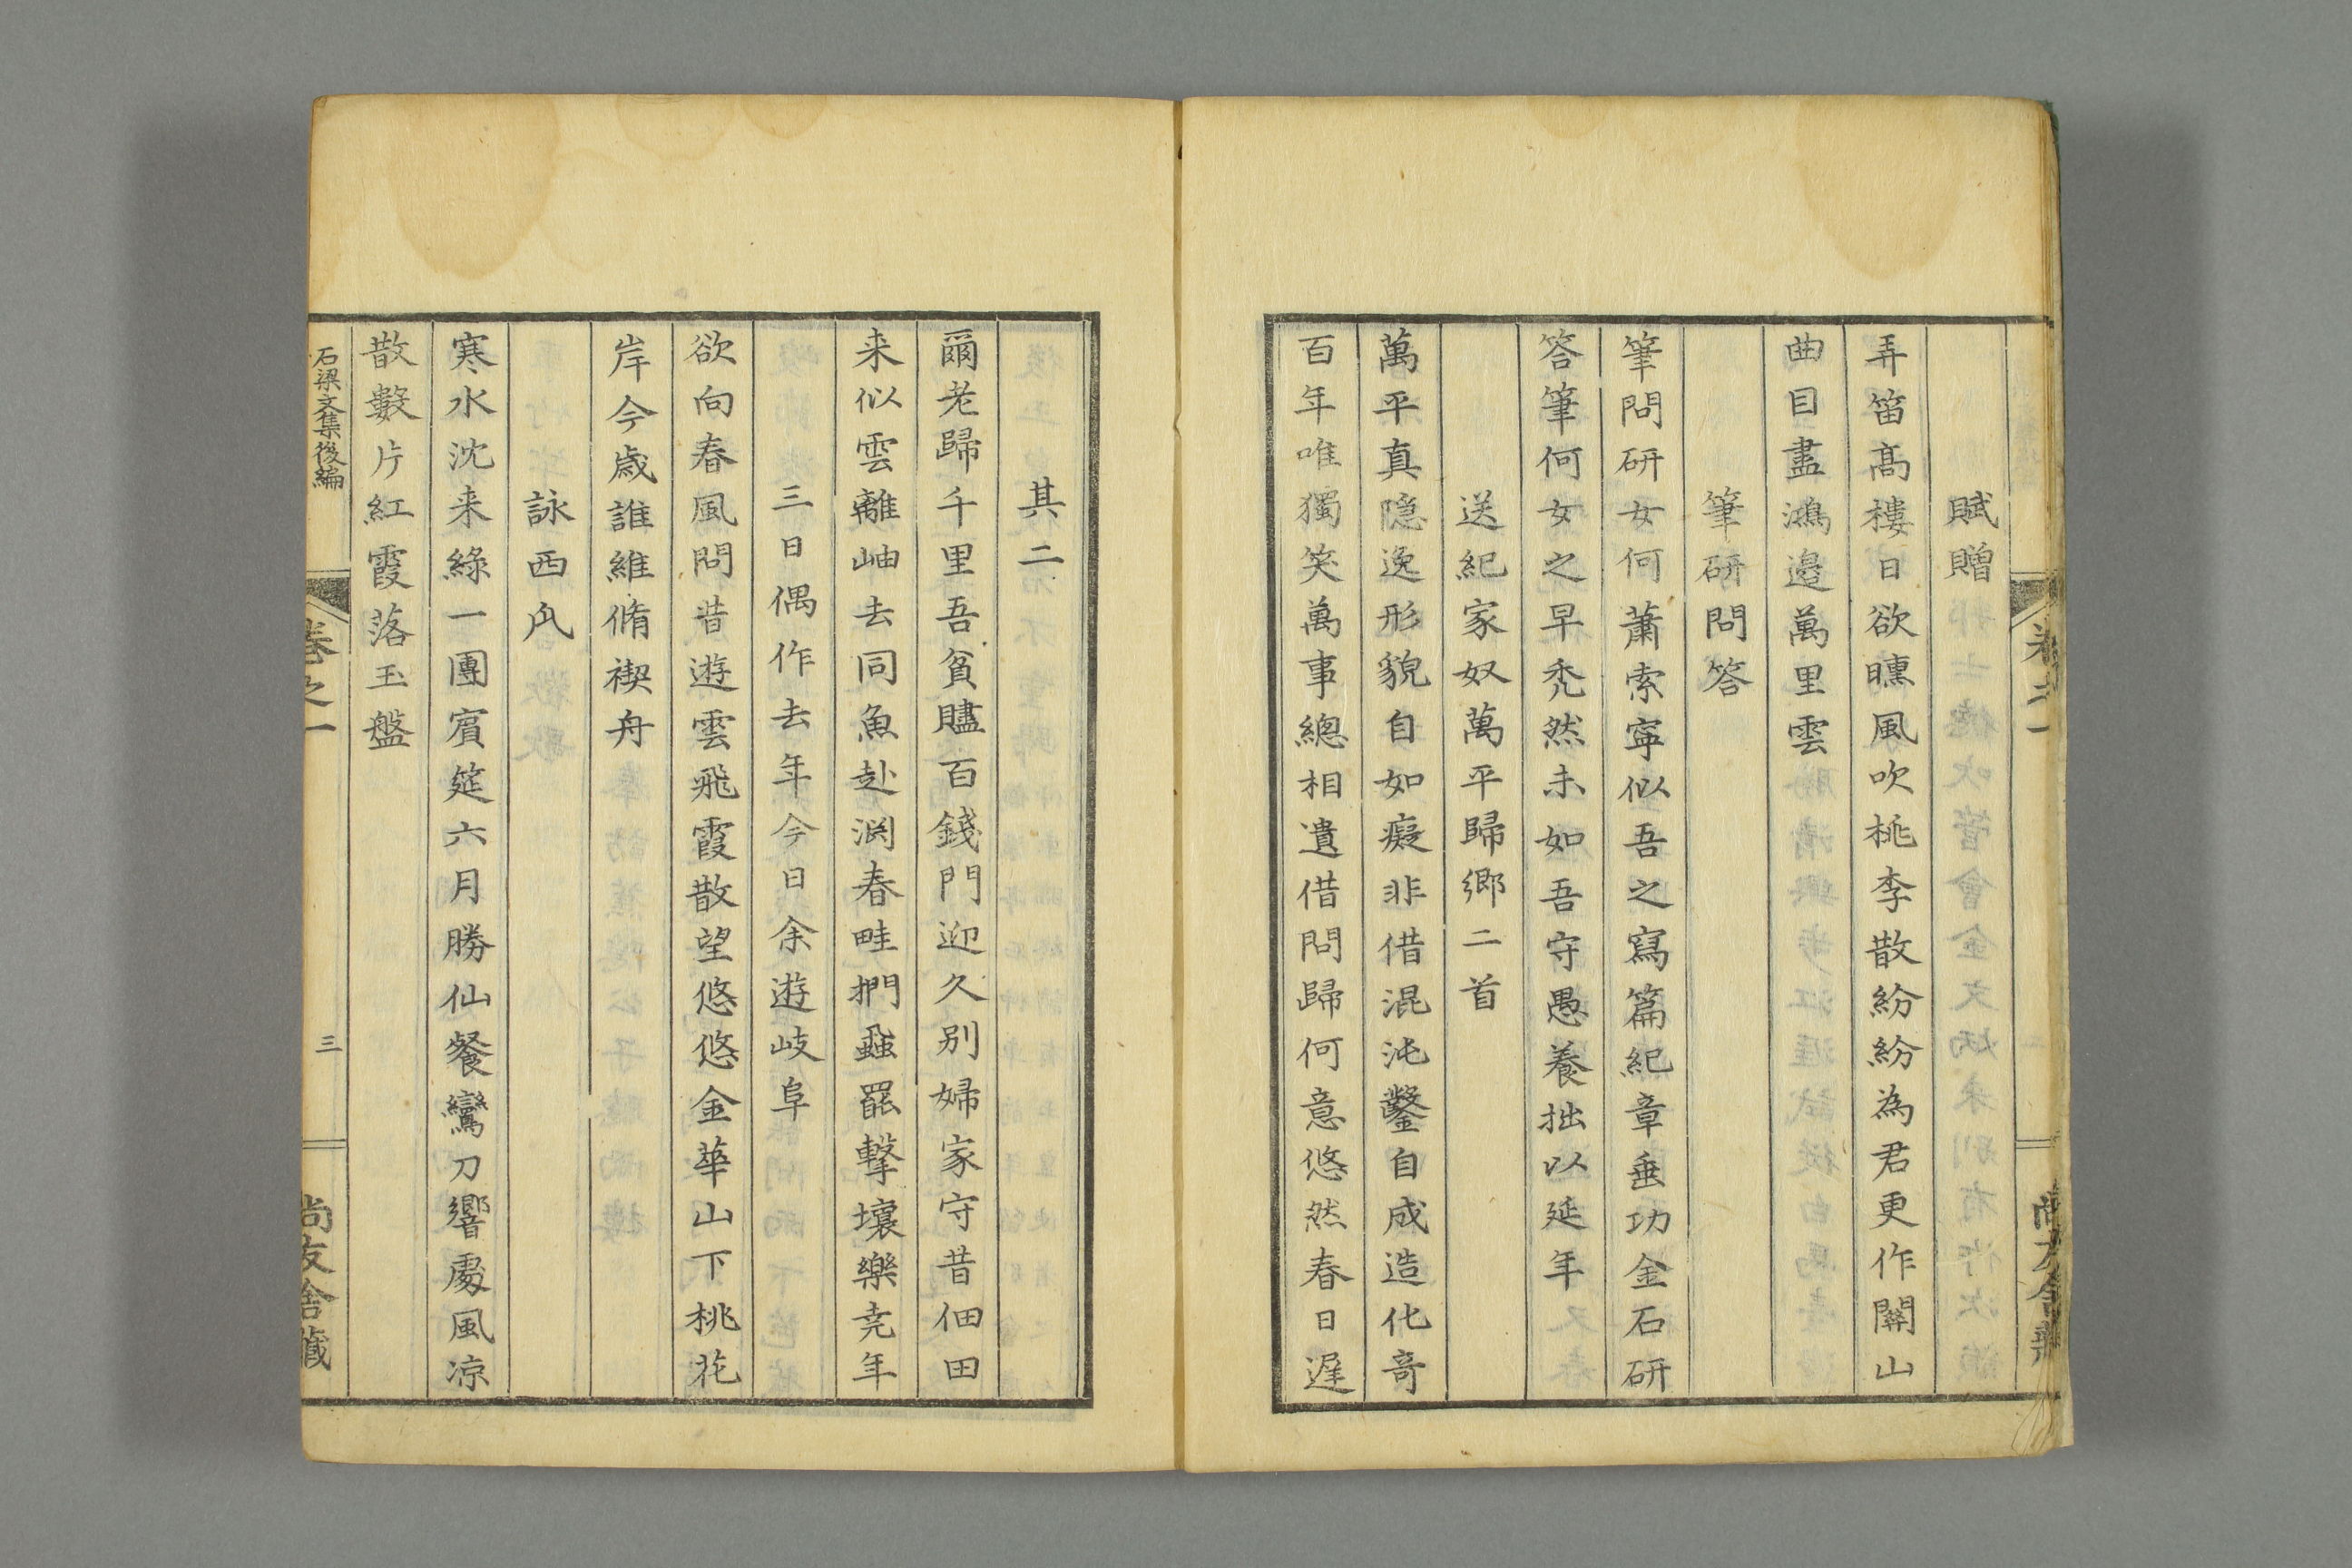 賦贈
弄笛髙樓日欲曛風吹桃李散紛紛為君更作關山
曲目盡鴻邉萬里雲
筆研問答
筆問研女何蕭索寧似吾之寫篇紀章垂功金石研
答筆何女之早禿然未如吾守愚養拙以延年
送紀家奴萬平歸鄉二首
萬平真隐逸形貌自如癡非借混沌鑿自成造化竒
百年唯獨笑萬事總相遺借問歸何意悠然春日遲
其二
爾老歸千里吾貧贐百錢門迎久别婦家守昔佃田
来似雲離岫去同魚赴渕春畦捫蝨罷擊壤樂尭年
三日偶作去年今日余遊岐阜
欲向春風問昔遊雲飛霞散望悠悠金華山下桃花
岸今歳誰維脩禊舟
詠西𤓰
寒水沈来綠一團賓筵六月勝仙餐鸞刀響處風凉
散數片紅霞落玉盤
石梁文集後編
卷之一
三
尚友舎藏